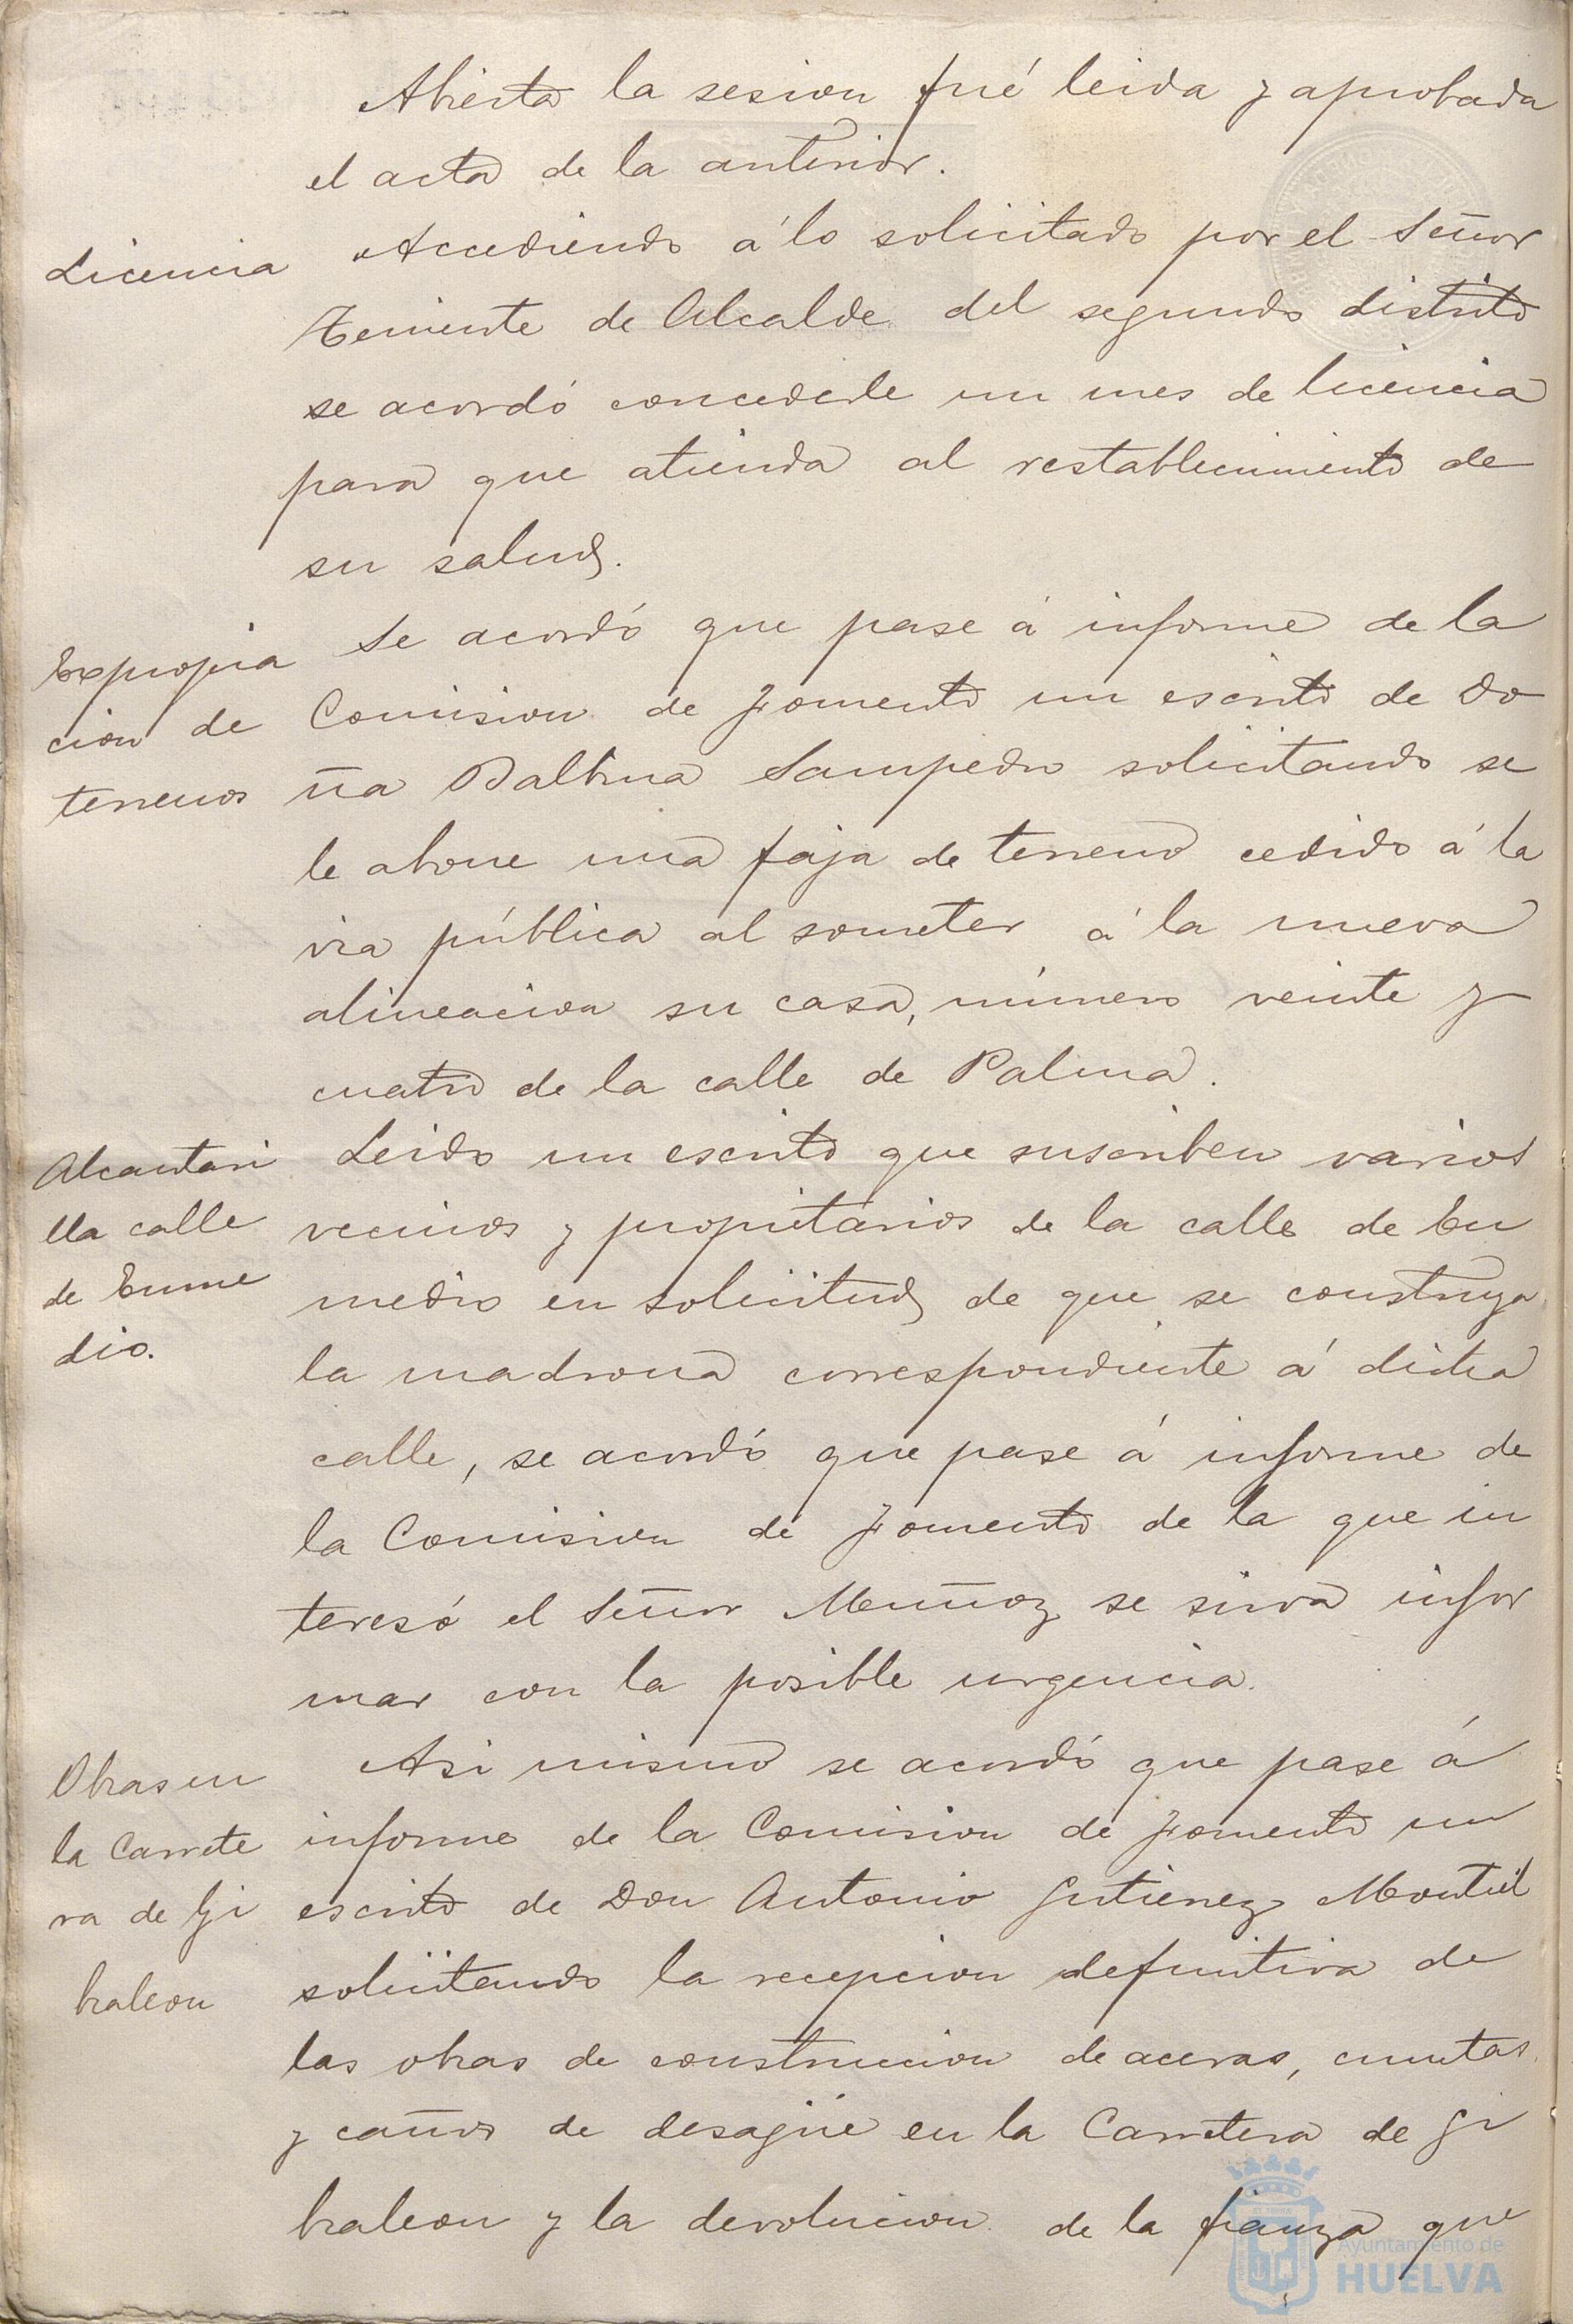 Abierta la sesion fué leida y aprobada
el acta de la anterior.
Licencia
Accediendo á lo solicitado por el Señor
Teniente de Alcalde del segundo distrito
se acordó concederle un mes de licencia
para que atienda al restablecimiento de
su salud.
Expropia
cion de
terrenos
Se acordó que pase á informe de la
Comision de Fomento un escrito de Do
ña Balbina Sampedro solicitando se
le abone una faja de terreno cedido á la
via pública al someter á la nueva
alineacion su casa, número veinte y
cuatro de la calle de Palma.
Alcantari
lla calle
de Enme
dio.
Leido un escrito que suscriben varios
vecinos y propietarios de la calle de En
medio en solicitud de que se construya
la madrona correspondiente á dicha
calle, se acordó que pase á informe de
la Comision de Fomento de la que in
teresó el Señor Muñoz se sirva infor
mar con la posible urgencia.
Obras en
la Carrete
ra de Gi
braleon
Asi mismo se acordó que pase á
informe de la Comision de Fomento un
escrito de Don Antonio Gutierrez Montiel
solicitando la recepcion definitiva de
las obras de construccion de aceras, cunetas
y caños de desagüe en la Carretera de Gi
braleon y la devolucion de la fianza que
Ayuntamiento de
HUELVA